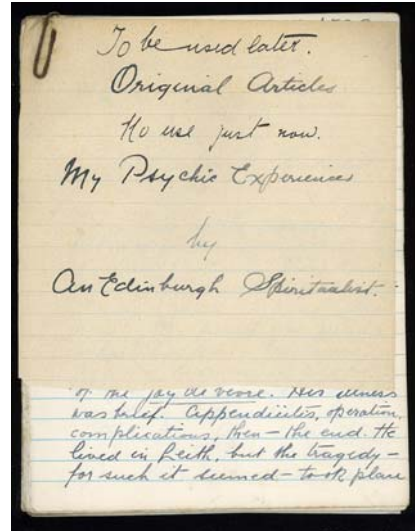 To be used later.
Original Articles
No use just now.
My Psychic Experiences
by
An Edinburgh Spiritualist.
of the joy de vivre. His illness
was brief. Appendicitis, operation,
complications, then – the end. He
lived in Leith, but the tragedy –
for such it seemed – took place